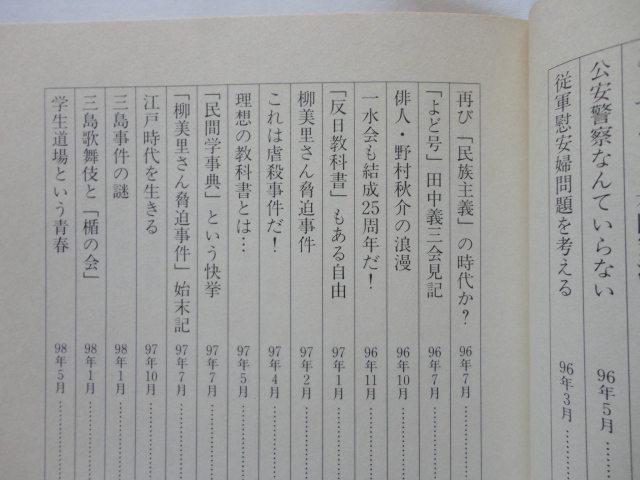 公安警察なんていらない 96年5月
従軍慰安婦問題を考える 96年3月
再び「民族主義」の時代か? 96年7月
「よど号」田中義三会見記 96年7月
俳人・野村秋介の浪漫 96年10月
一水会も結成25周年だ! 96年11月
「反日教科書」もある自由 97年1月
柳美里さん脅迫事件 97年2月
これは虐殺事件だ! 97年4月
理想の教科書とは… 97年5月
「民間学事典」という快挙 97年7月
「柳美里さん脅迫事件」始末記 97年7月
江戸時代を生きる 97年10月
三島事件の謎 98年1月
三島歌舞伎と「楯の会」 98年1月
学生道場という青春 98年5月